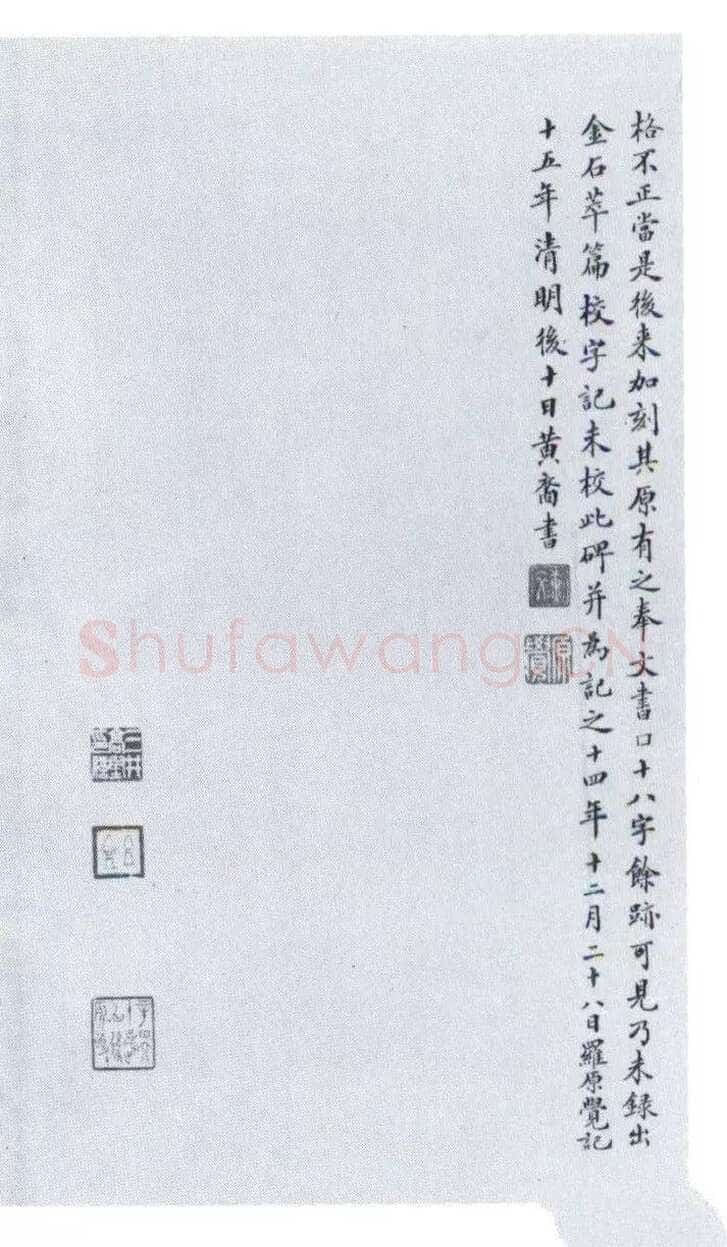 格不正當是後来加刻其原有之奉文書口十八字餘跡可見乃未録出
金石萃篇校字記未校此碑并為記之十四年十二月二十八日羅原覺記
十五年清明後十日黄裔書
原覺
Shufawang.CN